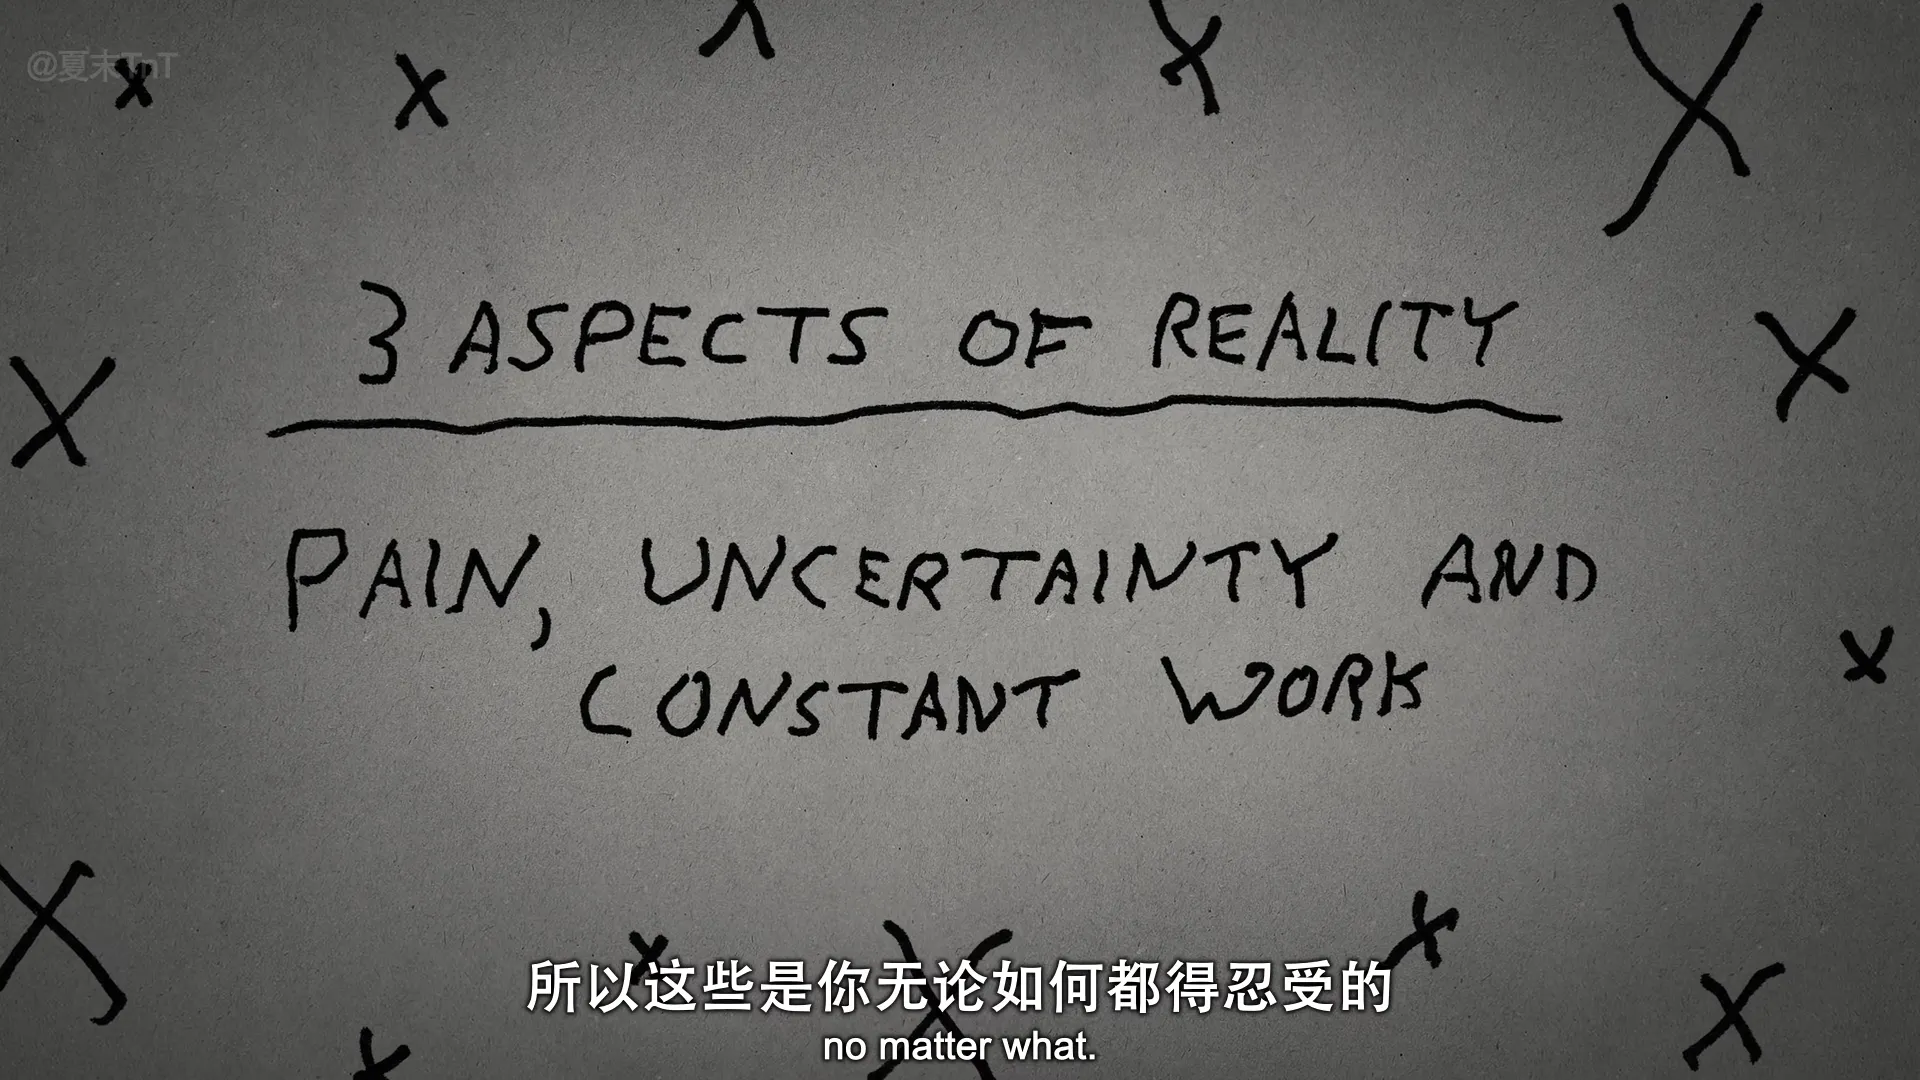 @夏末TnT
3 ASPECTS OF REALITY
PAIN, UNCERTAINTY AND
CONSTANT WORK
所以这些是你无论如何都得忍受的
no matter what.